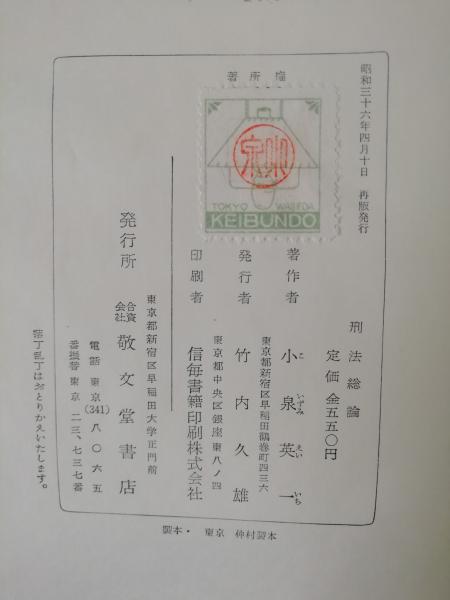 昭和三十六年四月十日　再版発行
刑法総論
定価　金五五〇円
著作者　小泉英一
こ　いずみ　えい　いち
東京都新宿区早稲田鶴巻町四三六
発行者　竹内久雄
東京都中央区銀座東八ノ四
印刷者　信毎書籍印刷株式会社
著所権
TOKYO WASEDA
KEIBUNDO
東京都新宿区早稲田大学正門前
発行所　合資会社　敬文堂書店
電話　東京(341)八〇六五
番振替　東京　二三、七三七番
落丁乱丁はおとりかえいたします。
製本・東京　仲村製本